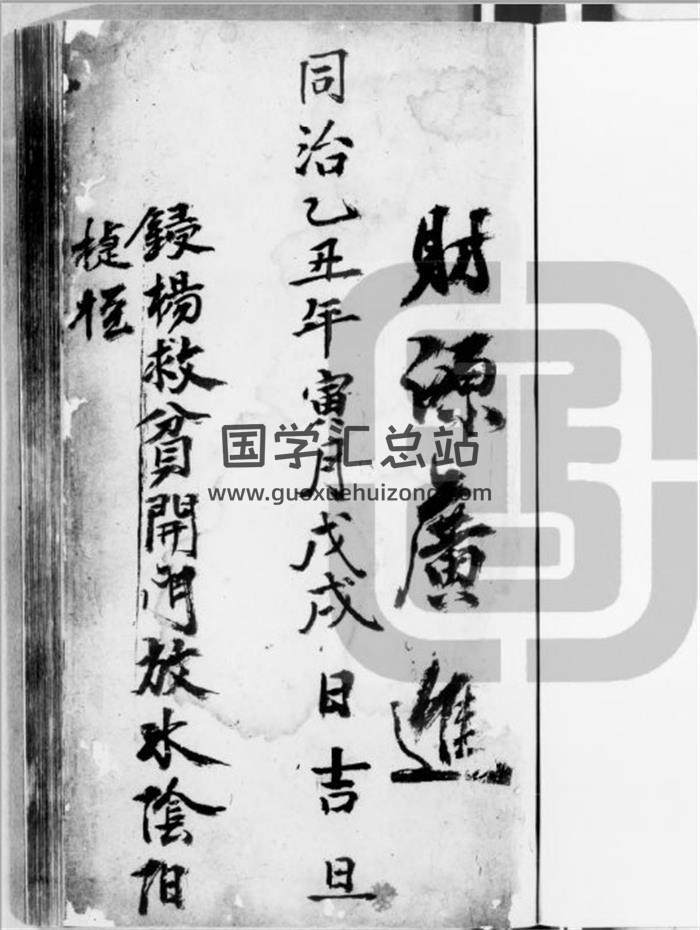 財源廣進
同治乙丑年寅月戊戌日吉旦
鋟楊救貧開門放水陰阳
捷徑
国学汇总站
www.guoxuehuizong.com